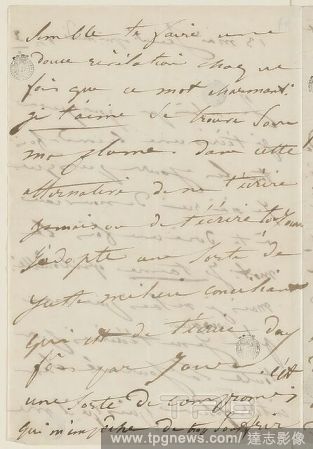 semble te faire une
douce révélation chaque
fois que ce mot charmant:
je t'aime se trouve sous
ma plume. dans cette
alternative de ne t'écrire
jamais ou de t'écrire toujours
j'adopte une sorte de
juste milieu conciliant
qui est de t'écrire deux
fois par jour. C'est
une sorte de compromis
qui m'empêche de trop souffrir
www.tpgnews.com / 達志影像